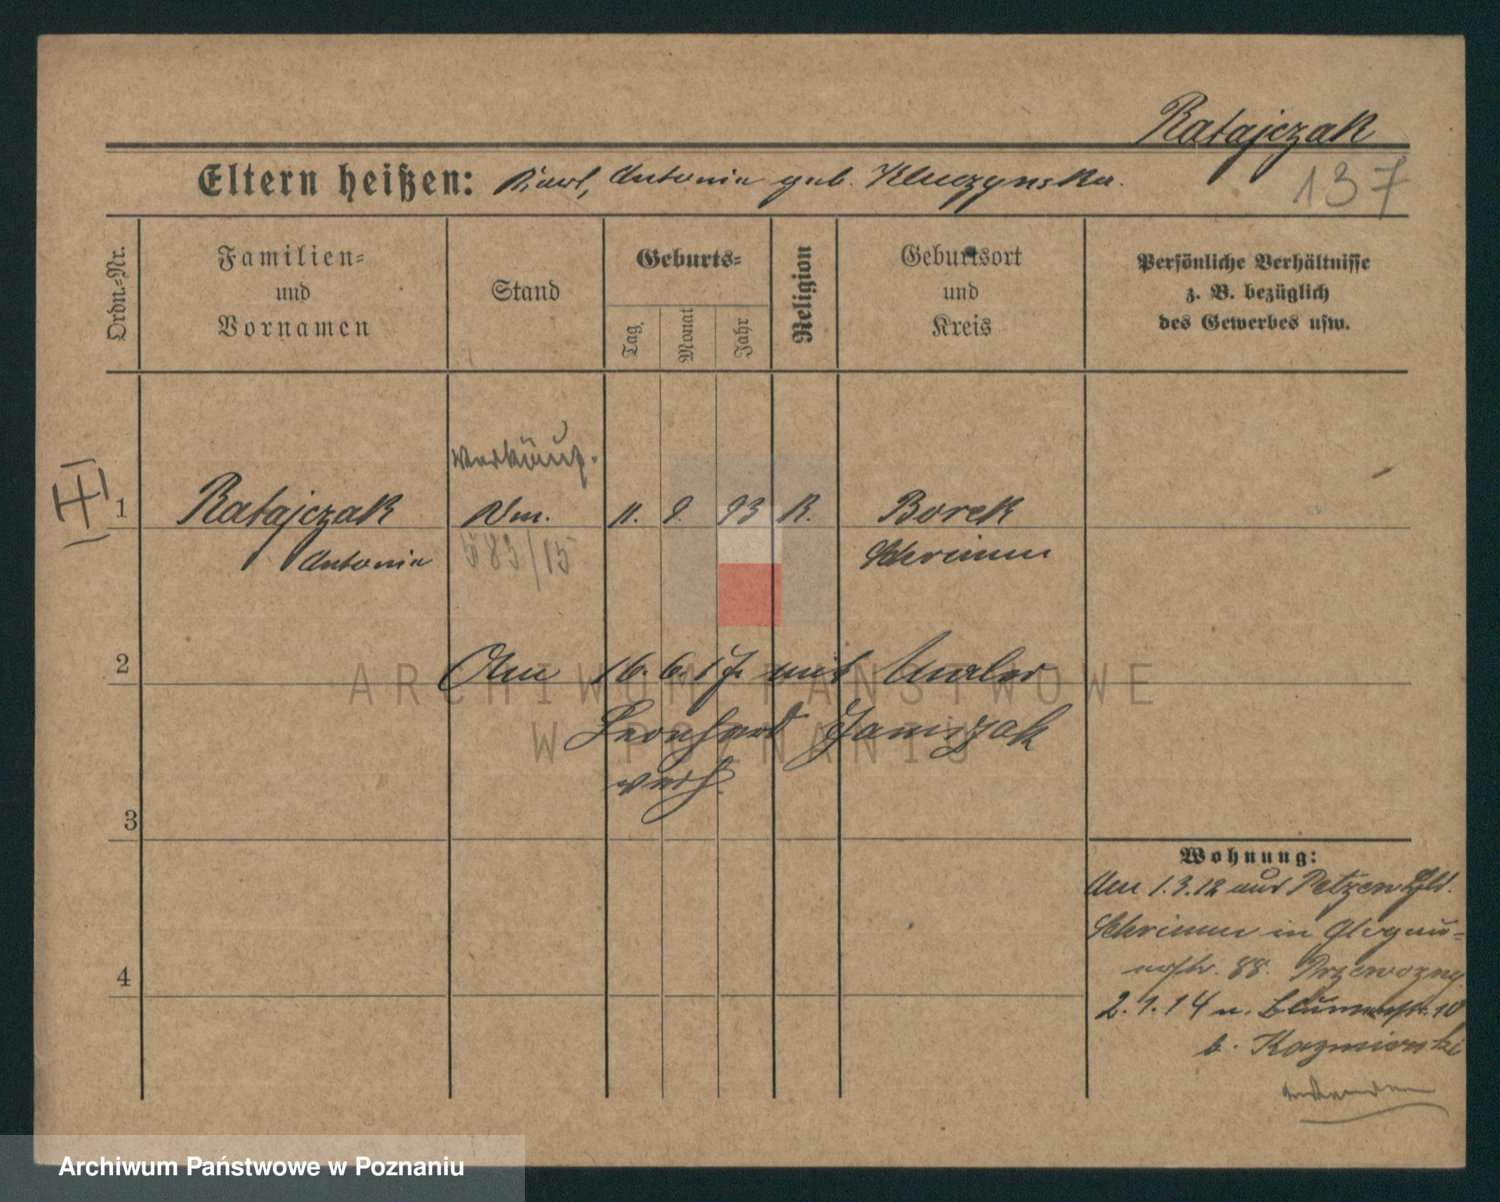 Ratajczak
137
Eltern heißen: Karl, Antonie geb. Kluczynska.
Ordn.-Nr.
Familien-
und
Vornamen
Stand
Geburts-
Tag.
Monat
Jahr
Religion
Geburtsort
und
Kreis
Persönliche Verhältnisse
z. B. bezüglich
des Gewerbes usw.
1
Ratajczak
Antonie
583/15
11. 9. 93 K.
Borek
Schrimm
2
Am 16. 6. 17. mit Maler
Leonhard Janiszak
verh.
3
4
Wohnung:
Am 1.3.12 aus Petzen
Schrimm in Glogau-
erstr. 88. Przewozny
2.1.14 n. Blumenstr. 10
b. Kazmierski
ARCHIWUM PAŃSTWOWE
W POZNANIU
Archiwum Państwowe w Poznaniu